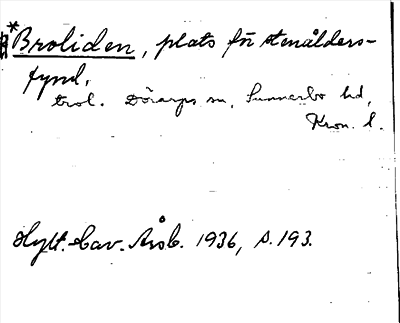 *Broliden, plats för stenålders-
fynd,
trol. Dörarps sn, Sunnerbo hd,
Kron. l.
Hylt.-Cav. Årsb. 1936, s. 193.